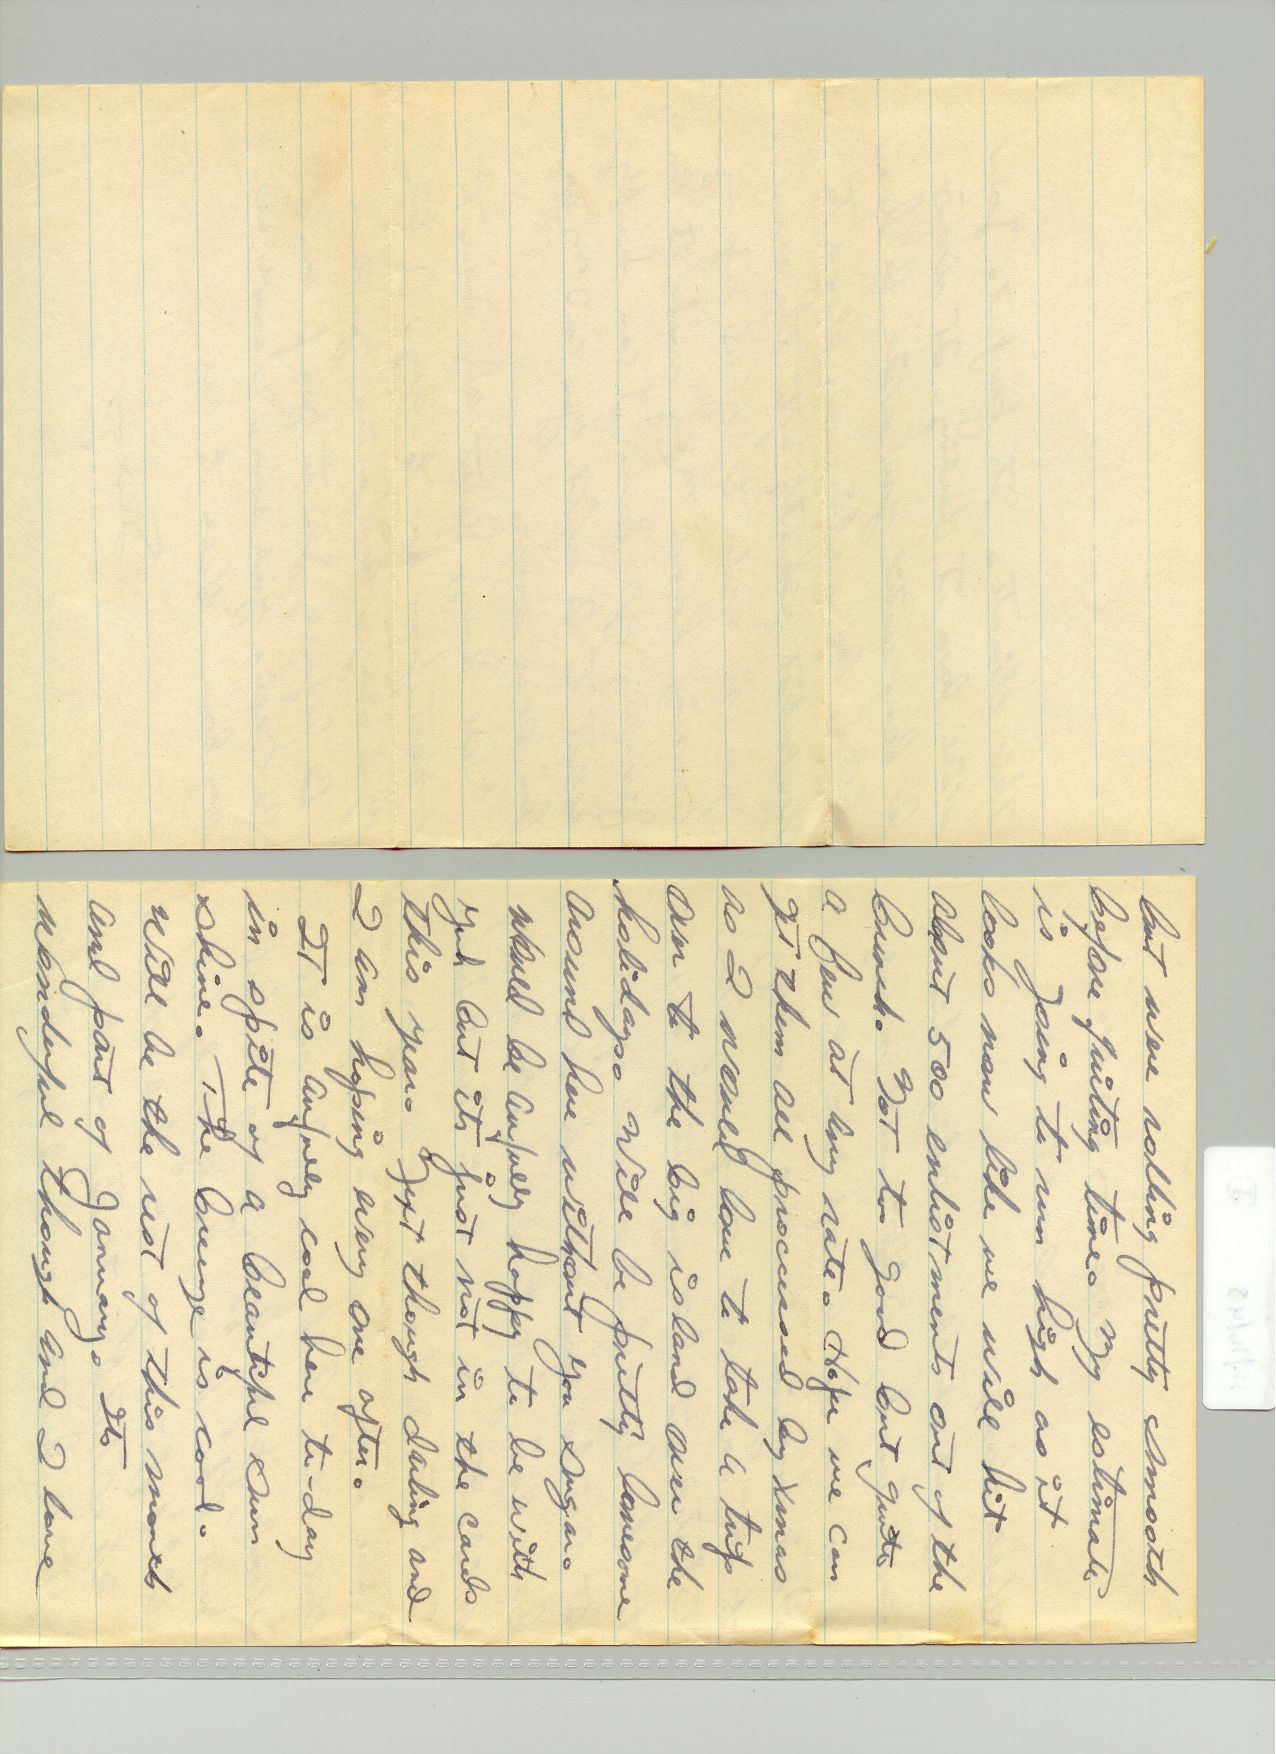 but were rolling pretty smooth
before quiting time. My estimate
is going to run high as it
looks now like we will hit
about 500 enlistments out of the
bunch. Not too good but quite
a few at any rate. Hope we can
get them all proccessed by Xmas
as I would love to take a trip
over to the big island over the
holidays. Will be pretty lonesome
around here without you sugar.
Would be awfully happy to be with
you but its just not in the cards
this year. Next though darling and
I am hoping every one after.
It is awfully cool here to-day
in spite of a beautiful sun
shine. The breeze is cool.
Will be the rest of this month
and part of January. Its
wonderful though and I love